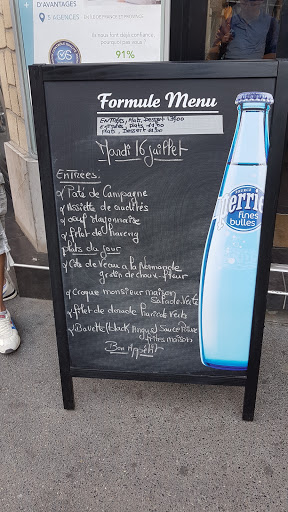 D'AVANTAGES
5 AGENCES
91%
Formule Menu
ENTRÉES, Plats, Dessert
Entrées, Plats
Plats, Dessert
Mardi 16 juillet
ENTREES
Paté de Campagne
Assiette de crudités
œuf Mayonnaise
filet de Hareng
plats du jour
Cote de Veau a la Normande
gratin de choux-fleur
Croque monsieur maison
Salade Verte
filet de dorade Haricots Verts
Bavette (black Angus) Sauce
frites maison
Bon Appétit
Perrier
fines
bulles